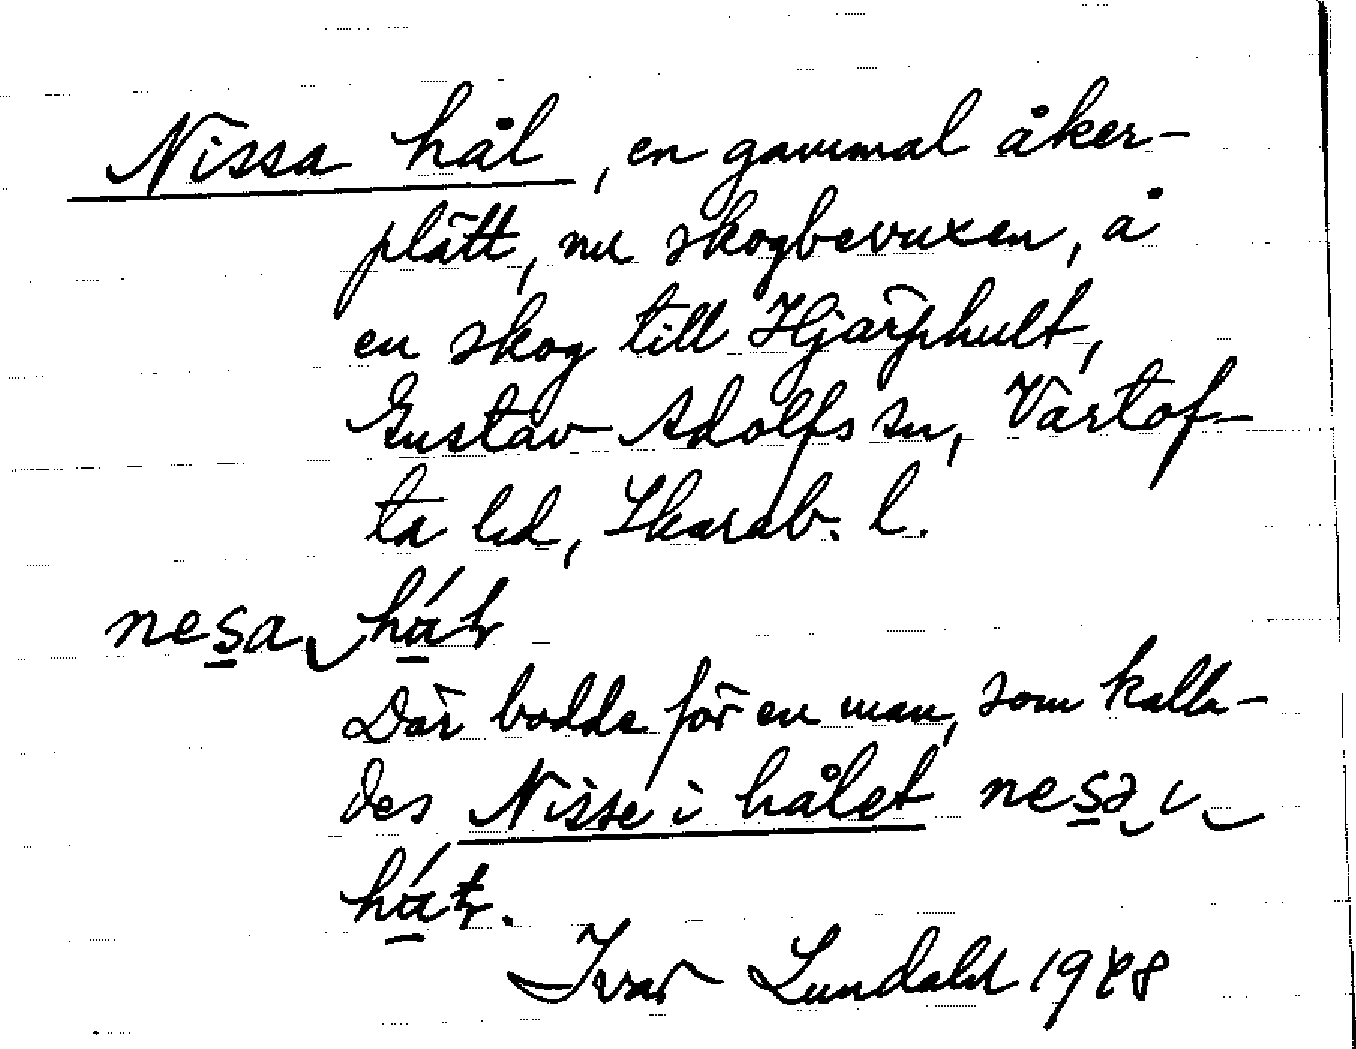 Nissa hål, en gammal åker-
plätt, nu skogbevuxen, å
en skog till Hjärphult,
Gustav Adolfs sn, Vartof-
ta hd, Skarab. l.
nesa hål
Där bodde förr en man, som kalla-
des Nisse i hålet nesə ι
hål.
Ivar Lundahl 1948